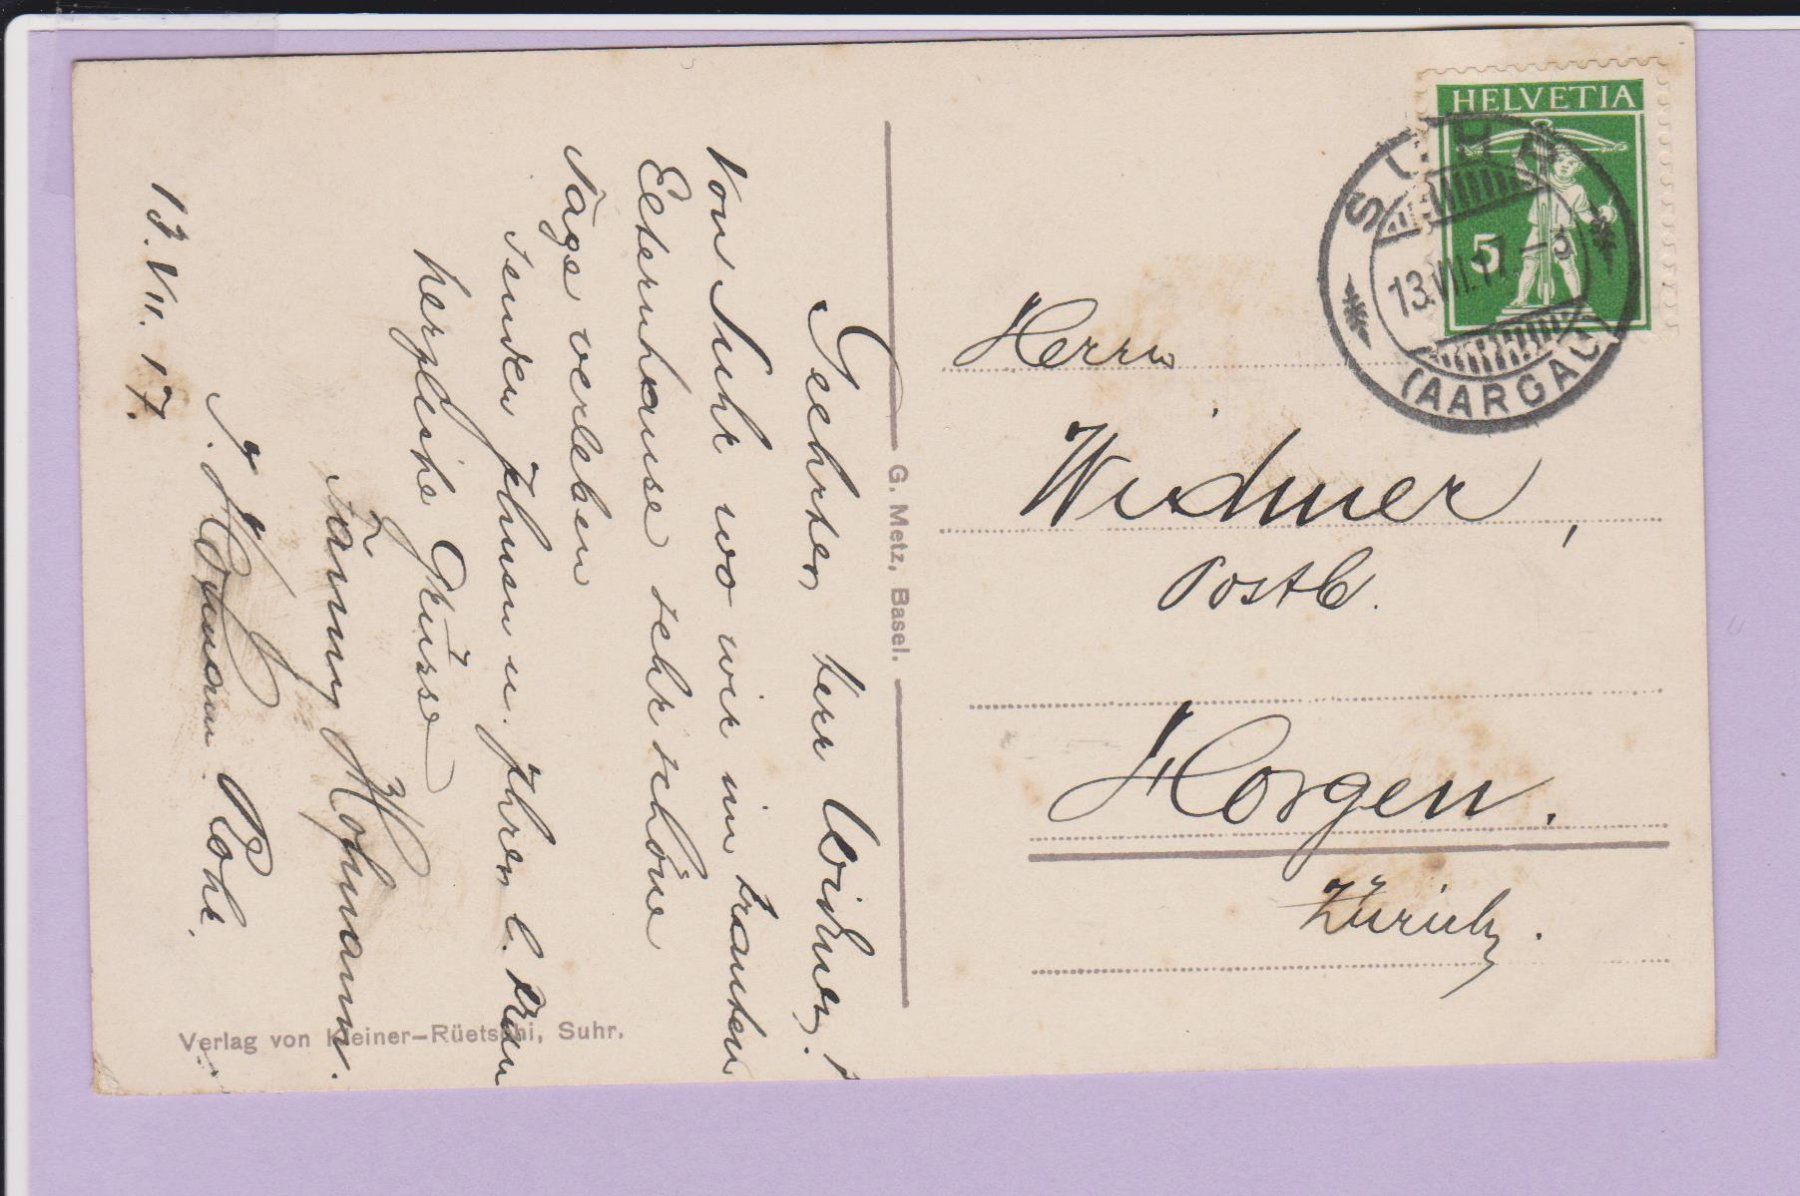 Geehrter Herr Widmer!
Von Suhr wo wir im trauten
Elternhause sehr schöne
Tage verleben
senden Ihnen u. Ihrer l. Frau
herzliche Grüsse
Fanny Hofmann.
Rohr.
13. VII. 17.
G. Metz, Basel.
Verlag von Kleiner-Rüetschi, Suhr.
HELVETIA
5
SUHR
13.VII.17.-3
(AARGAU)
Herrn
Widmer,
Postb.
Horgen.
Zürich.